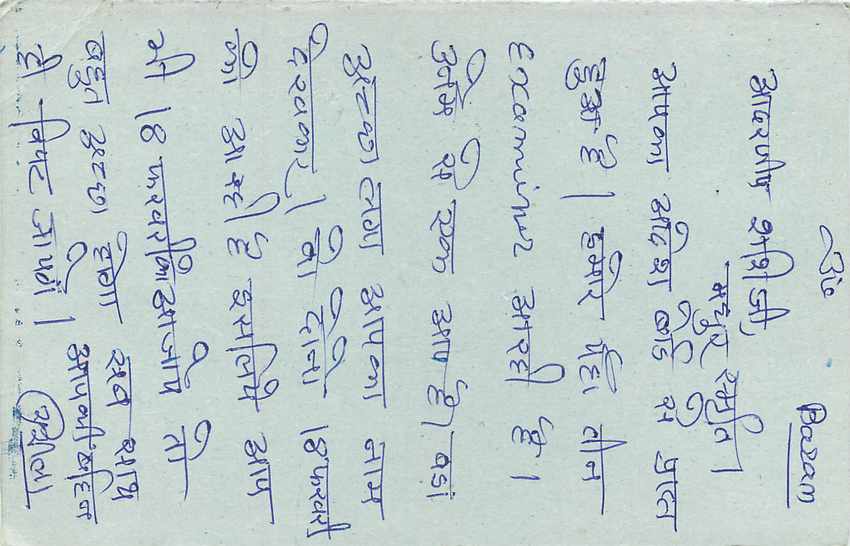 ॐ
Basam
आदरणीय शशि जी,
मधुर स्मृति।
आपका संदेश कार्ड से प्राप्त
हुआ है। हमारे यहाँ तीन
Examiner आ रही हैं।
उनमें से एक आप हैं। बडा
अच्छा लगा आपका नाम
देखकर। वो दोनो 18 फरवरी
को आ रही है इसलिये आप
भी 18 फरवरी को आ जाँय तो
बहुत अच्छा होगा सब साथ
ही निपट जायेंगे।
आपकी बहिन
सुशीला